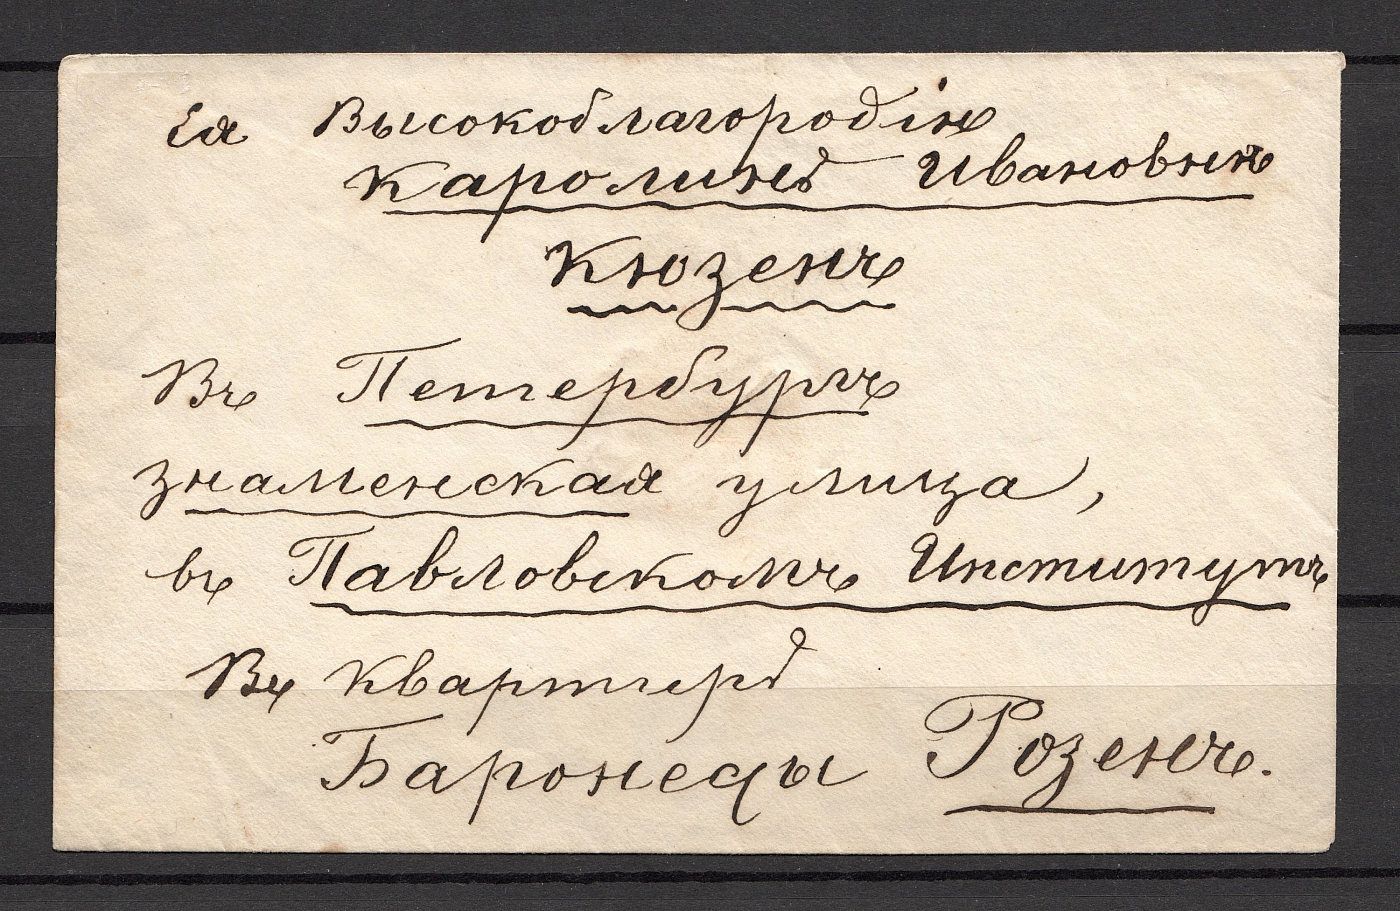 Ея Высокоблагородію
Каролинѣ Ивановнѣ
Кюзенъ
Въ Петербургъ
Знаменская улица,
въ Павловскомъ Институтъ
Въ квартирѣ
Баронесы Розенъ.